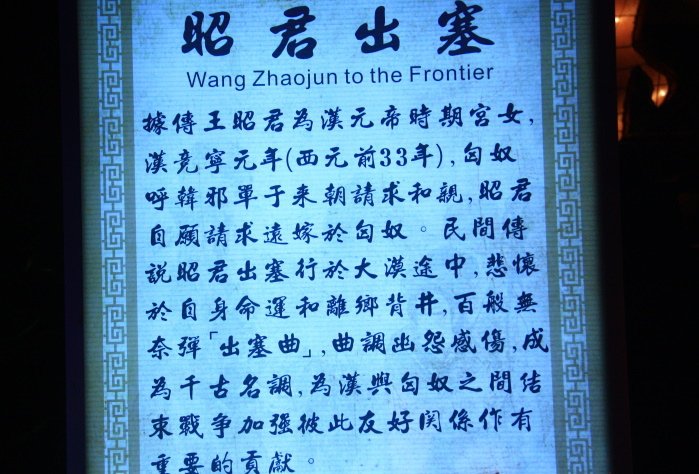 昭君出塞
Wang Zhaojun to the Frontier
據傳王昭君為漢元帝時期宮女,
漢竟寧元年(西元前33年),匈奴
呼韓邪單于来朝請求和親,昭君
自願請求遠嫁於匈奴。民間傳
說昭君出塞行於大漠途中,悲懷
於自身命運和離鄉背井,百般無
奈彈「出塞曲」,曲調幽怨感傷,成
為千古名調,為漢與匈奴之間结
束戰争加强彼此友好関係作有
重要的貢獻。